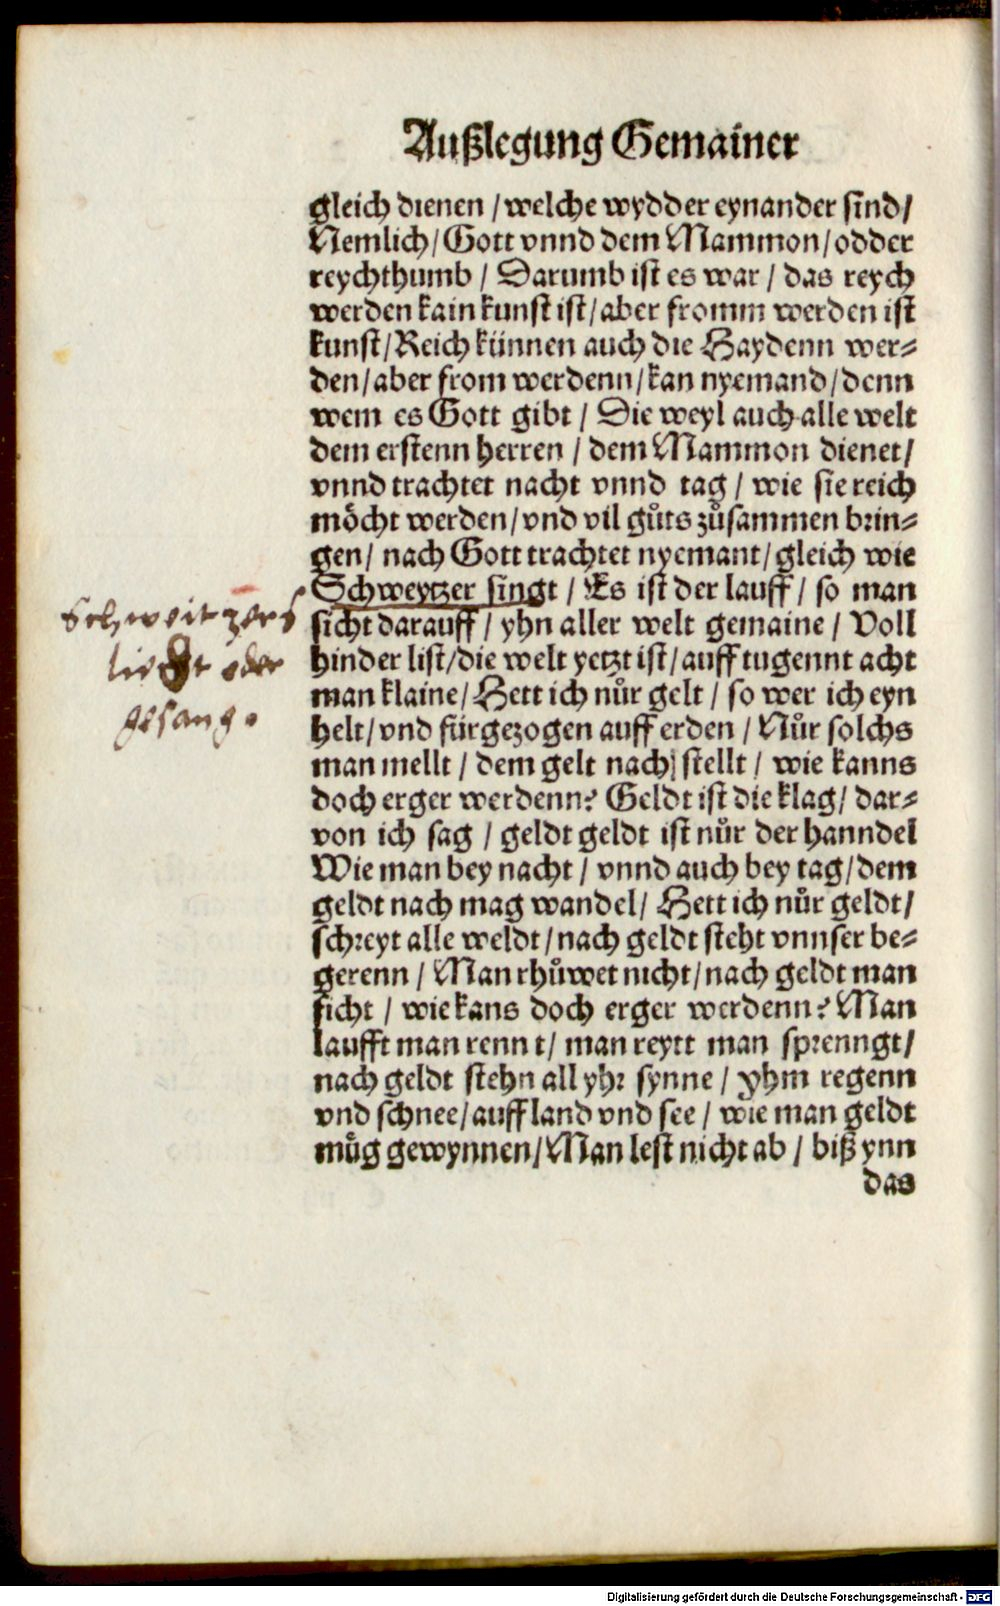 Außlegung Gemainer
gleich dienen / welche wydder eynander sind /
Nemlich / Gott vnnd dem Mammon / odder
reychthumb / Darumb ist es war / das reych
werden kain kunst ist / aber fromm werden ist
kunst / Reich künnen auch die Haydenn wer⸗
den / aber from werdenn / kan nyemand / denn
wem es Gott gibt / Die weyl auch alle welt
dem erstenn herren / dem Mammon dienet /
vnnd trachtet nacht vnnd tag / wie sie reich
möcht werden / vnd vil gůts zůsammen brin⸗
gen / nach Gott trachtet nyemant / gleich wie
Schweytzer singt / Es ist der lauff / so man
sicht darauff / yhn aller welt gemaine / Voll
hinder list / die welt yetzt ist / auff tugennt acht
man klaine / Hett ich nůr gelt / so wer ich eyn
helt / vnd fürgezogen auff erden / Nůr solchs
man mellt / dem gelt nach stellt / wie kanns
doch erger werdenn? Geldt ist die klag / dar⸗
von ich sag / geldt geldt ist nůr der hanndel
Wie man bey nacht / vnnd auch bey tag / dem
geldt nach mag wandel / Hett ich nůr geldt /
schreyt alle weldt / nach geldt steht vnnser be⸗
gerenn / Man rhůwet nicht / nach geldt man
ficht / wie kans doch erger werdenn? Man
laufft man rennt / man reytt man sprenngt /
nach geldt stehn all yhr synne / yhm regenn
vnd schnee / auff land vnd see / wie man geldt
müg gewynnen / Man lest nicht ab / biß ynn
das
Schweitzers
liedt oder
gesang.
Digitalisierung gefördert durch die Deutsche Forschungsgemeinschaft - DFG